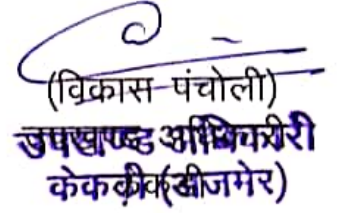 (विकास पंचोली)
उपखण्ड अधिकारी
केकड़ी(अजमेर)